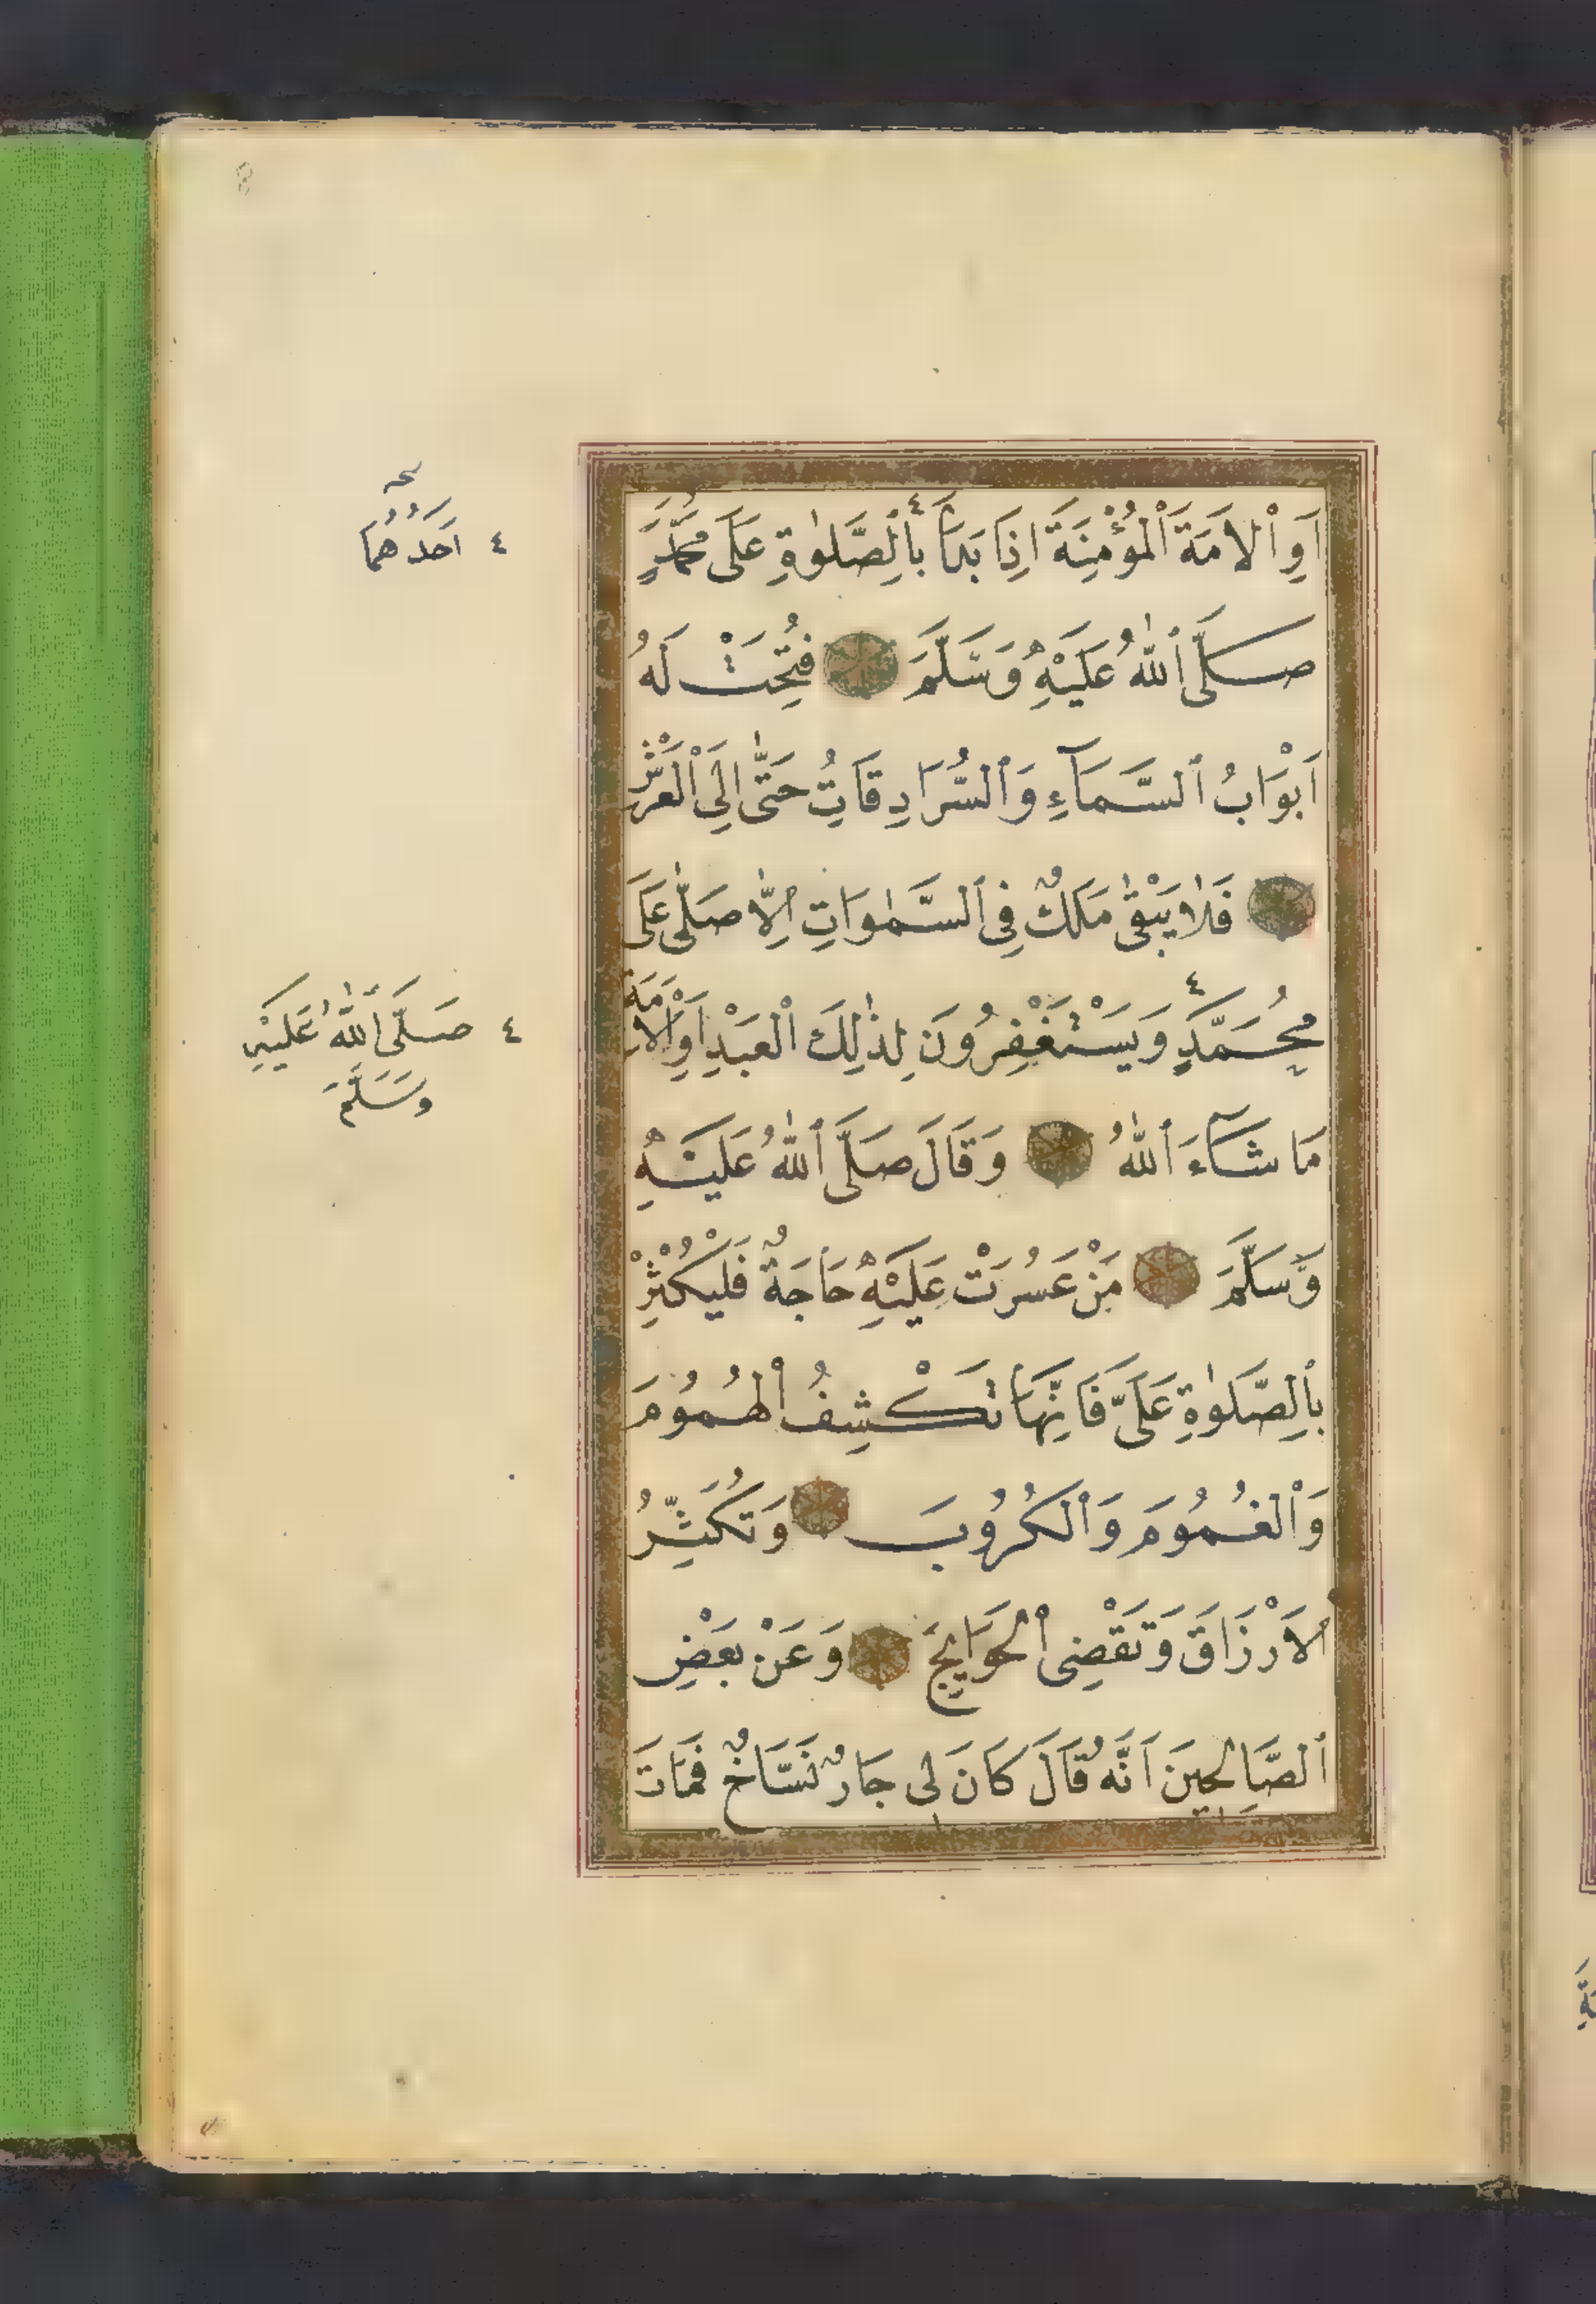 اَوِ ٱلْاَمَةَ ٱلْمُؤْمِنَةَ اِذَا بَدَأَ ٤ بِٱلصَّلٰوةِ عَلَى مُحَمَّدٍ
صَلَّى ٱللّٰهُ عَلَيْهِ وَسَلَّمَ فُتِحَتْ لَهُ
اَبْوَابُ ٱلسَّمَآءِ وَٱلسُّرَادِقَاتُ حَتّٰى اِلَى ٱلْعَرْشِ
فَلَا يَبْقٰى مَلَكٌ فِى ٱلسَّمٰوَاتِ اِلَّا صَلّٰى عَلَى
مُحَمَّدٍ ٤ وَيَسْتَغْفِرُونَ لِذٰلِكَ ٱلْعَبْدِ اَوِ ٱلْاَمَةِ
مَا شَآءَ ٱللّٰهُ وَقَالَ صَلَّى ٱللّٰهُ عَلَيْهِ
وَسَلَّمَ مَنْ عَسُرَتْ عَلَيْهِ حَاجَةٌ فَلْيُكْثِرْ
بِٱلصَّلٰوةِ عَلَىَّ فَاِنَّهَا تَكْشِفُ ٱلْهُمُومَ
وَٱلْغُمُومَ وَٱلْكُرُوبَ وَتُكَثِّرُ
ٱلْاَرْزَاقَ وَتَقْضِى ٱلْحَوَايِجَ وَعَنْ بَعْضِ
ٱلصَّالِحِينَ اَنَّهُ قَالَ كَانَ لِى جَارٌ نَسَّاخٌ فَمَاتَ
٤ اَحَدُهُمَا
٤ صَلَّى ٱللّٰهُ عَلَيْهِ
وَسَلَّمَ